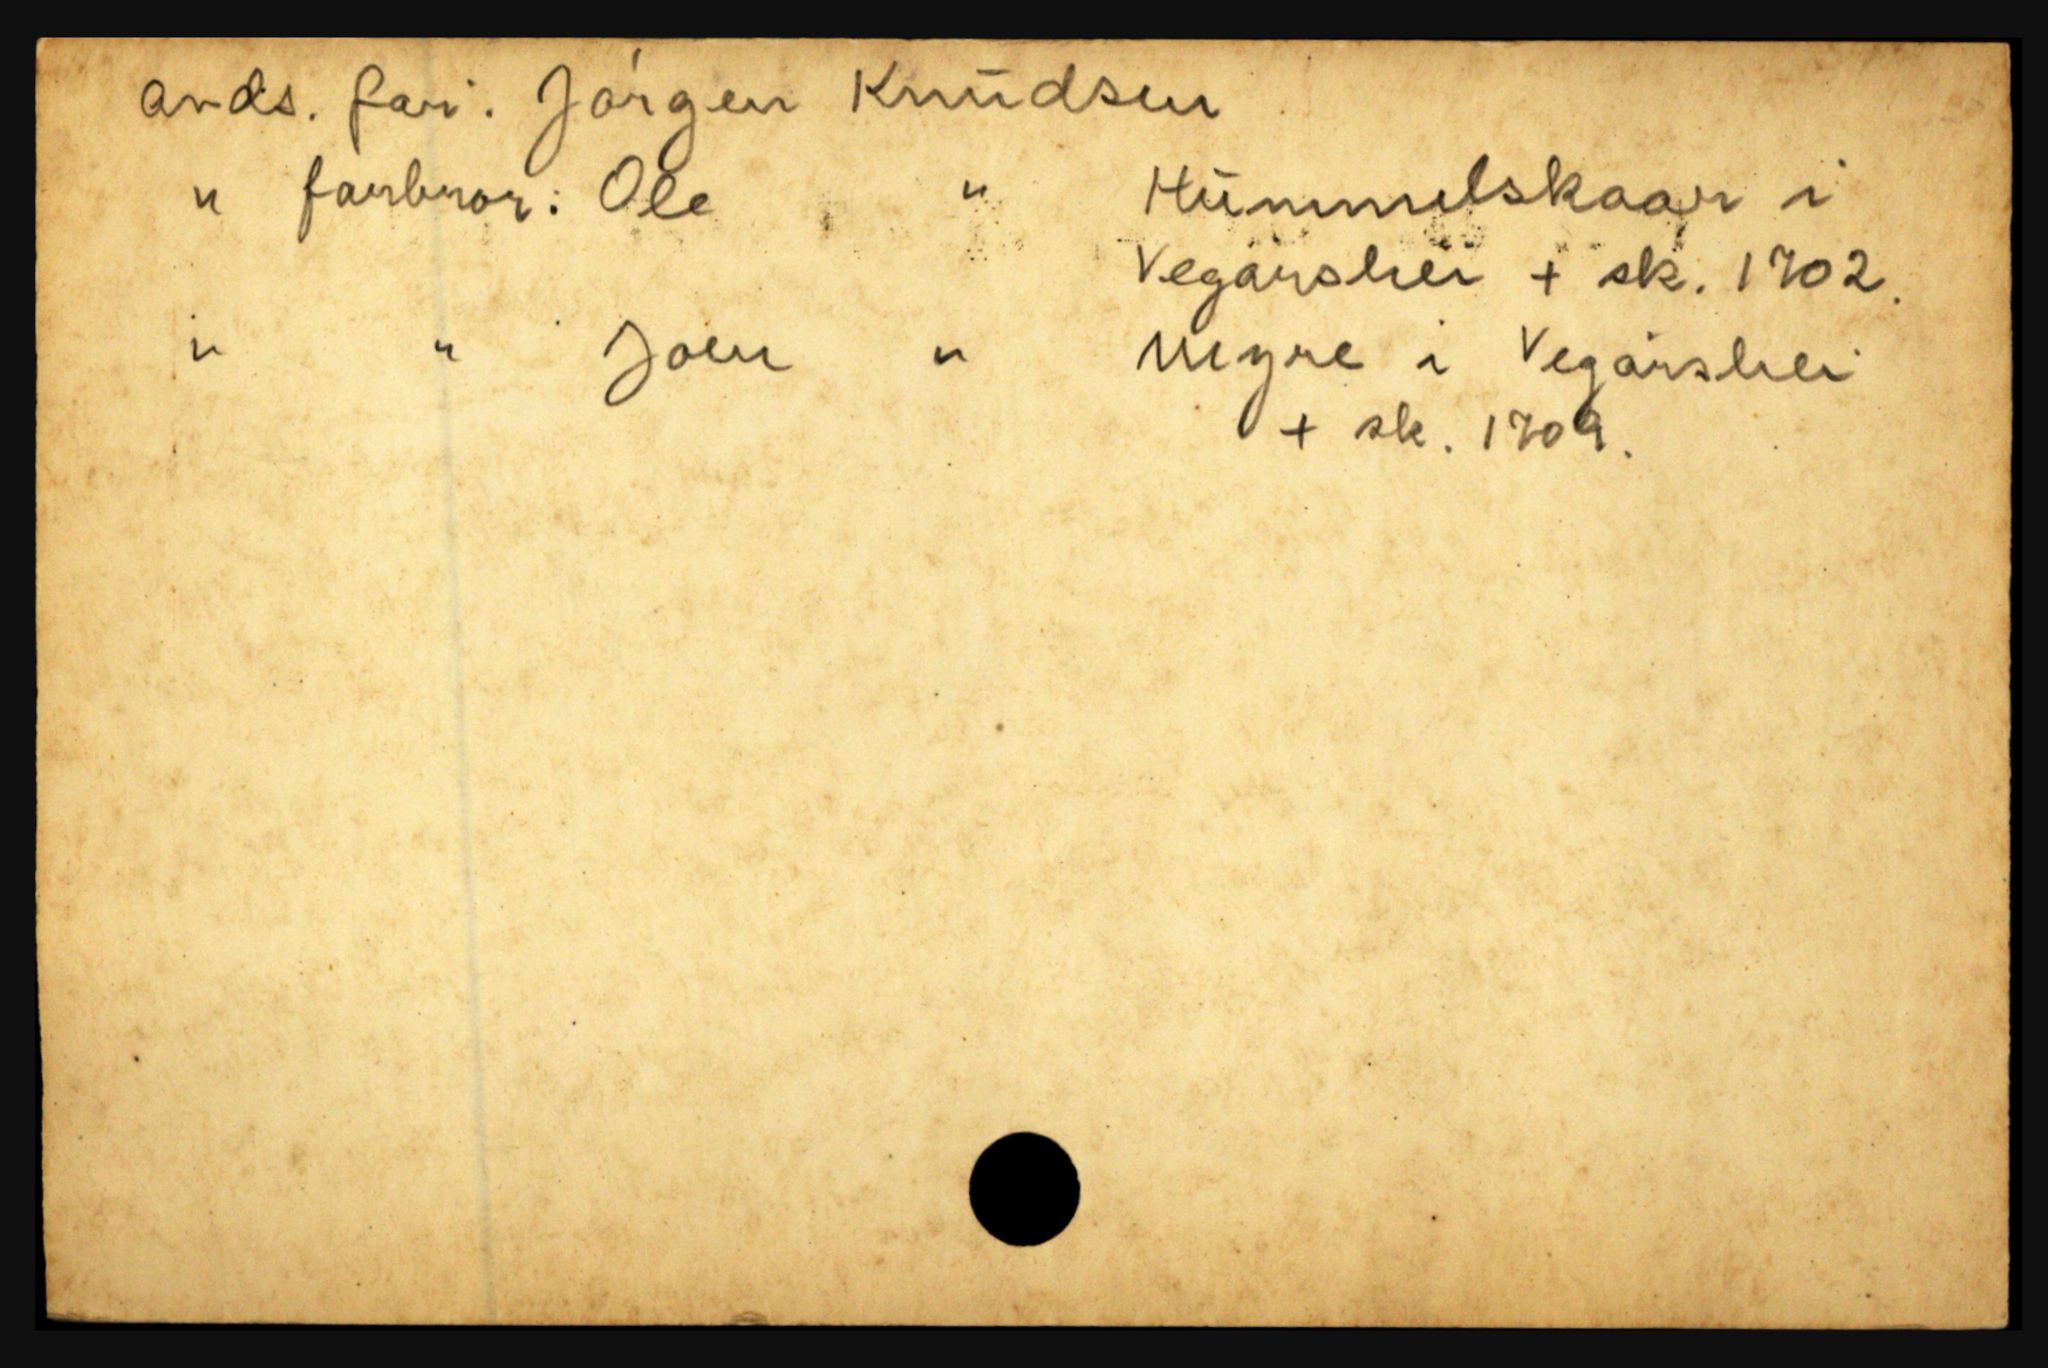 avds. far: Jórgen Knudsen
" farbror: Ole " Hummelskaar i
Vegårshei + sk. 1702.
" " Joen " Myre i Vegårshei
+ sk. 1709.